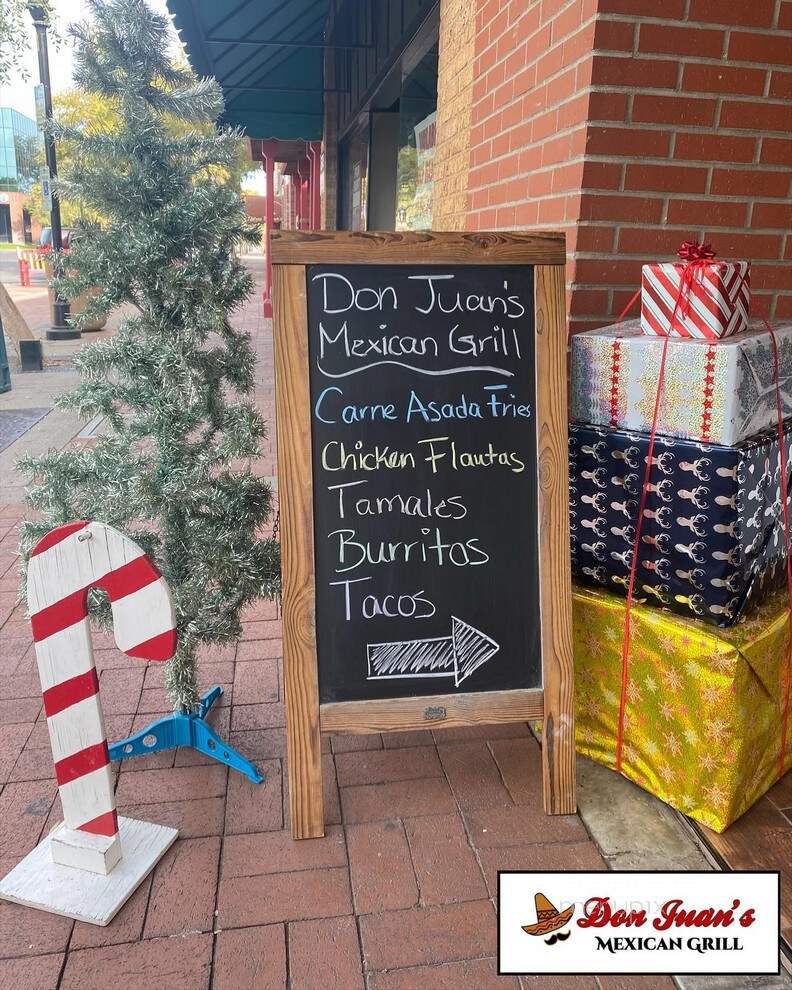 Don Juan's
Mexican Grill
Carne Asada Fries
Chicken Flautas
Tamales
Burritos
Tacos
Don Juan's
MEXICAN GRILL